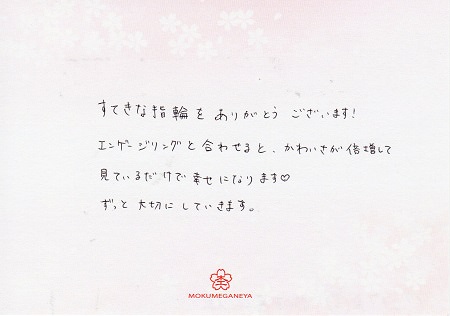 すてきな指輪を ありがとう ございます!
エンゲージリングと合わせると、かわいさが倍増して
見ているだけで幸せになります♡
ずっと大切にしていきます。
MOKUMEGANEYA